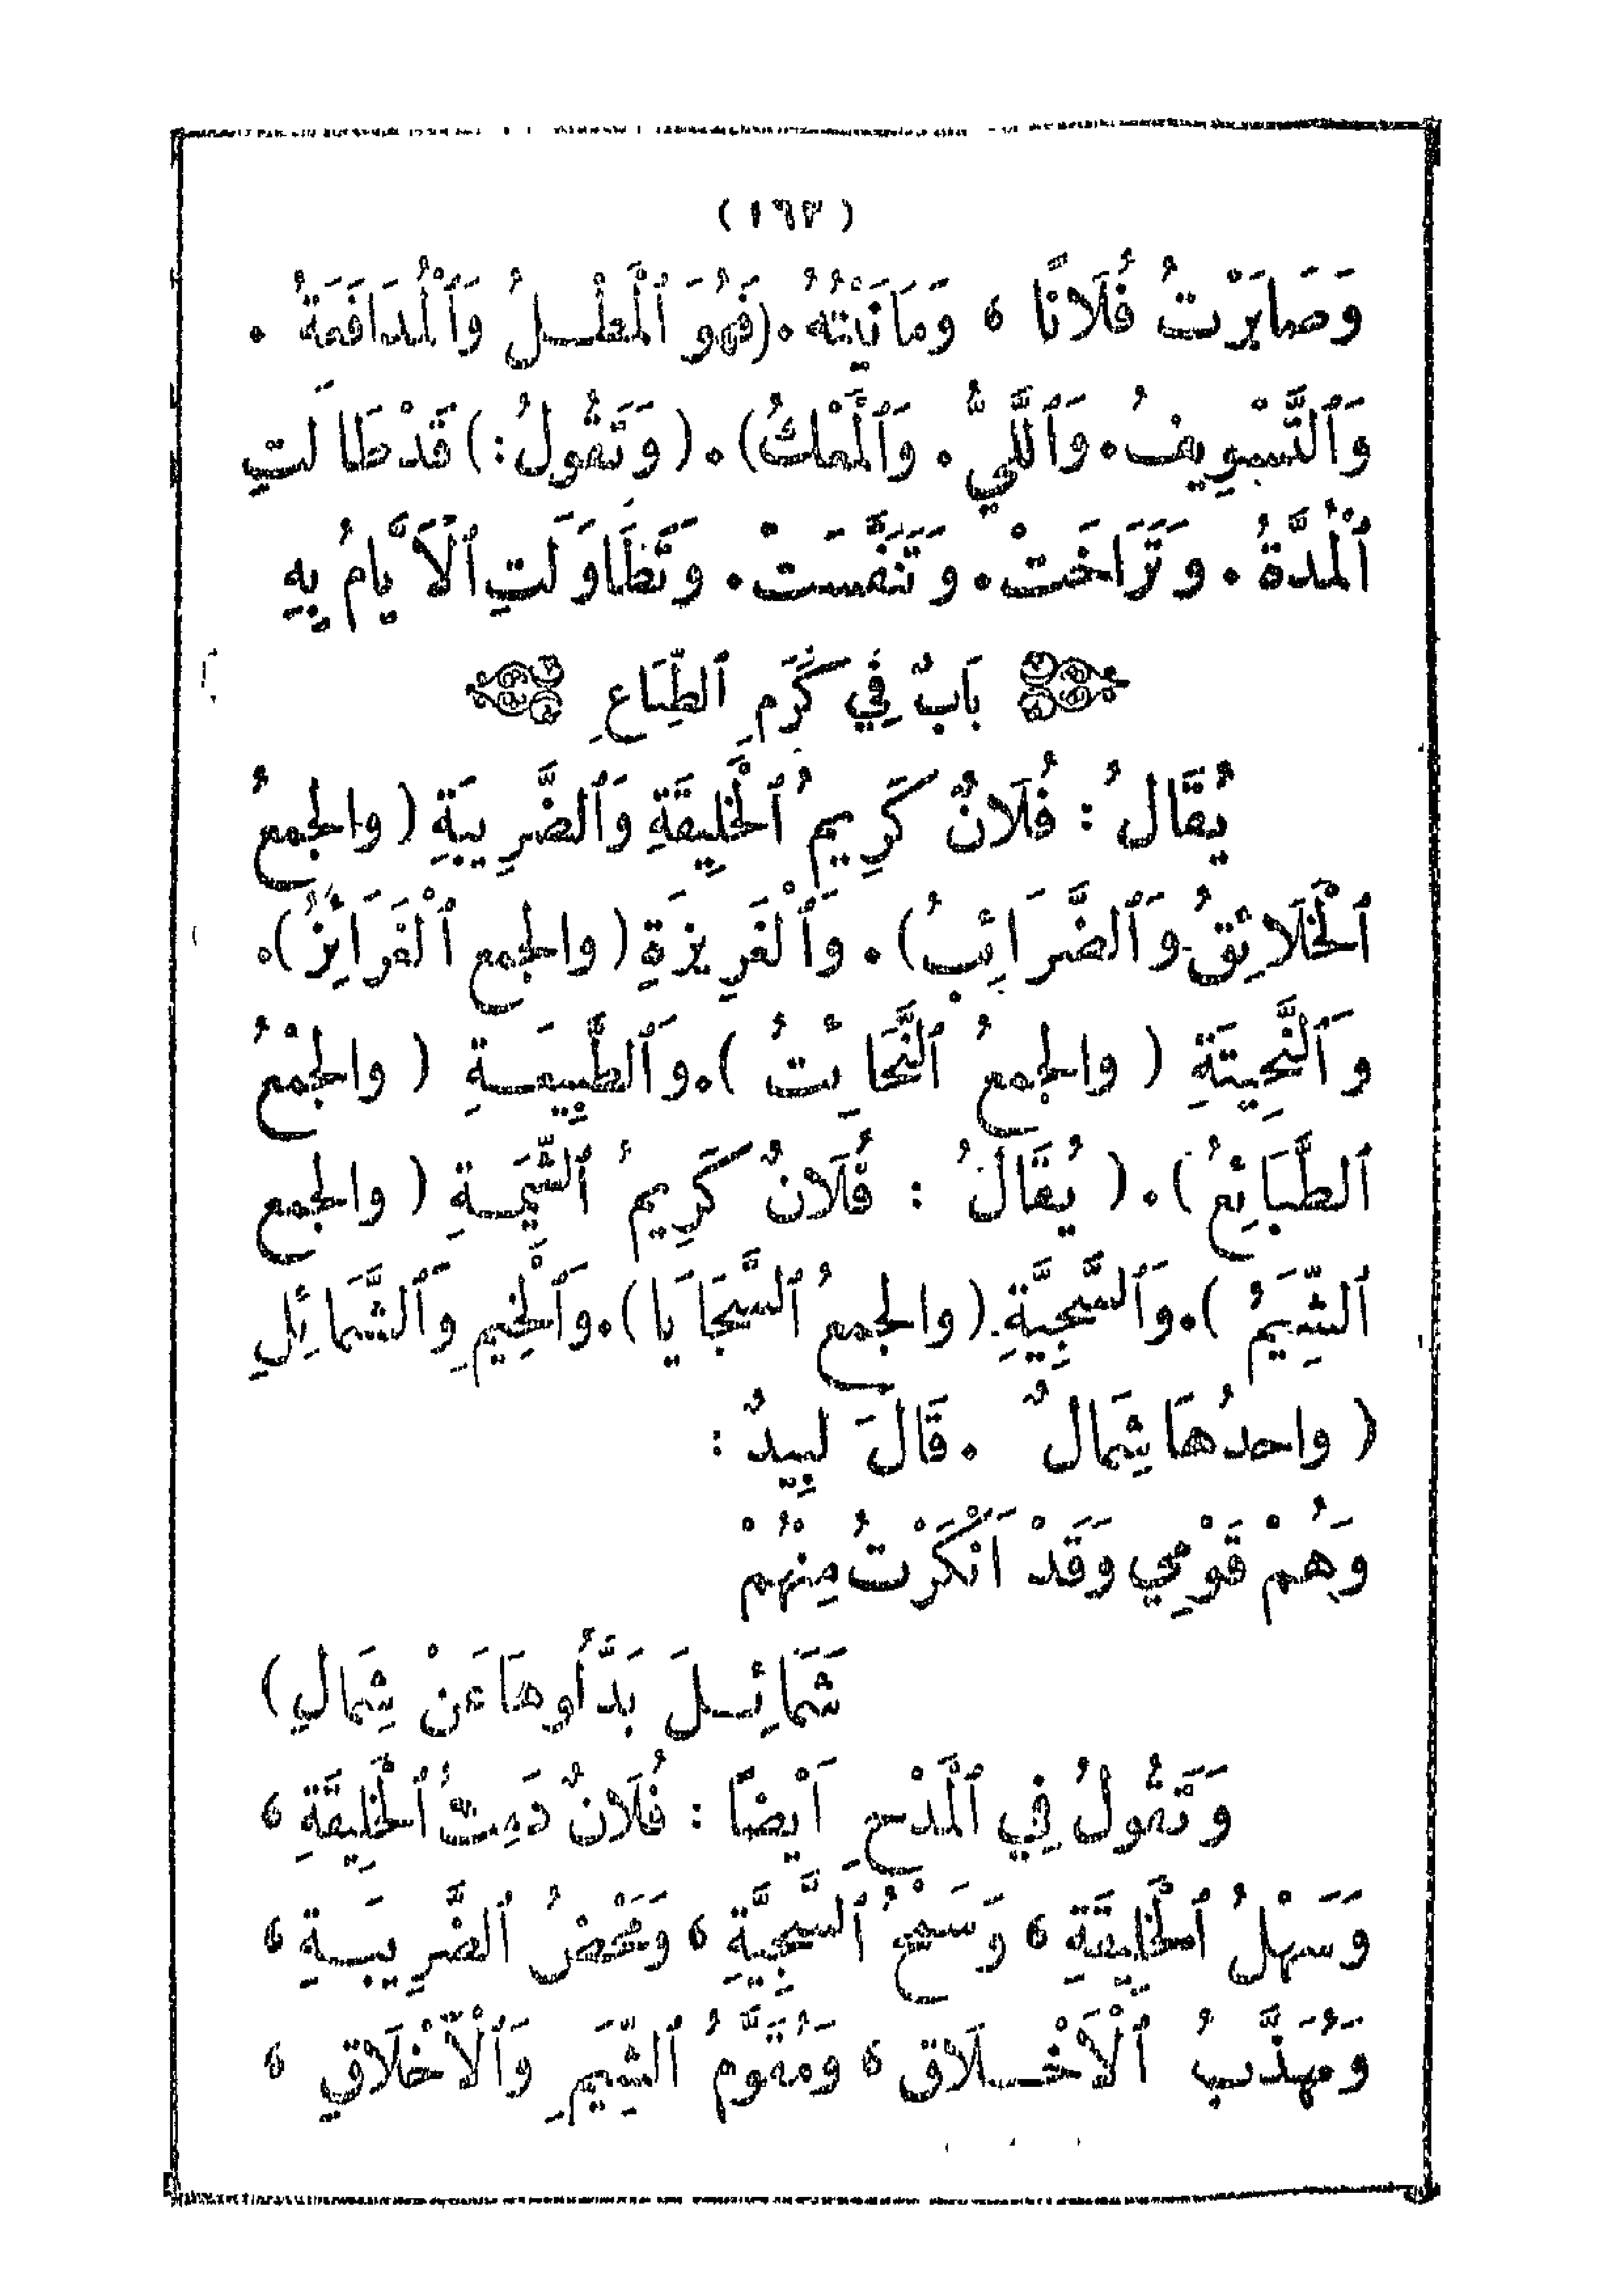 (١٦٣)
وَصَابَرْتُ فُلَانًا ، وَمَانَيْتُهُ . (فَهُوَ ٱلْمَطْلُ وَٱلْمُدَافَعَةُ .
وَٱلتَّسْوِيفُ . وَٱللَّيُّ . وَٱلْمَعْكُ) . (وَتَقُولُ :) قَدْ طَالَتِ
ٱلْمُدَّةُ . وَتَرَاخَتْ . وَتَنَفَّسَتْ . وَتَطَاوَلَتِ ٱلْأَيَّامُ بِهِ
بَابٌ فِي كَرَمِ ٱلطِّبَاعِ
يُقَالُ : فُلَانٌ كَرِيمُ ٱلْخَلِيقَةِ وَٱلضَّرِيبَةِ (والجمعُ
ٱلْخَلَائِقُ وَٱلضَّرَائِبُ) . وَٱلْغَرِيزَةِ (والجمع ٱلْغَرَائِزُ) .
وَٱلنَّحِيتَةِ (والجمعُ ٱلنَّحَائِتُ) . وَٱلطَّبِيعَةِ (والجمْعُ
ٱلطَّبَائِعُ) . (يُقَالُ : فُلَانٌ كَرِيمُ ٱلشِّيمَةِ (والجمع
ٱلشِّيَمُ) . وَٱلسَّجِيَّةِ (والجمعُ ٱلسَّجَايَا) . وَٱلْخِيمِ وَٱلشَّمَائِلِ
(واحدُهَا شِمَالٌ . قَالَ لبِيدٌ :
وَهُمْ قَوْمِي وَقَدْ أَنْكَرْتُ مِنْهُمْ
شَمَائِلَ بَدَّأُوهَا عَنْ شِمَالِي)
وَتَقُولُ فِي ٱلْمَدْحِ أَيْضًا : فُلَانٌ دَمِثُ ٱلْخَلِيقَةِ ،
وَسَهْلُ ٱلْخَلِيقَةِ ، وَسَمْحُ ٱلسَّجِيَّةِ ، وَمَحْضُ ٱلضَّرِيبَةِ ،
وَمُهَذَّبُ ٱلْأَخْلَاقِ ، وَمُقَوَّمُ ٱلشِّيَمِ وَٱلْأَخْلَاقِ ،